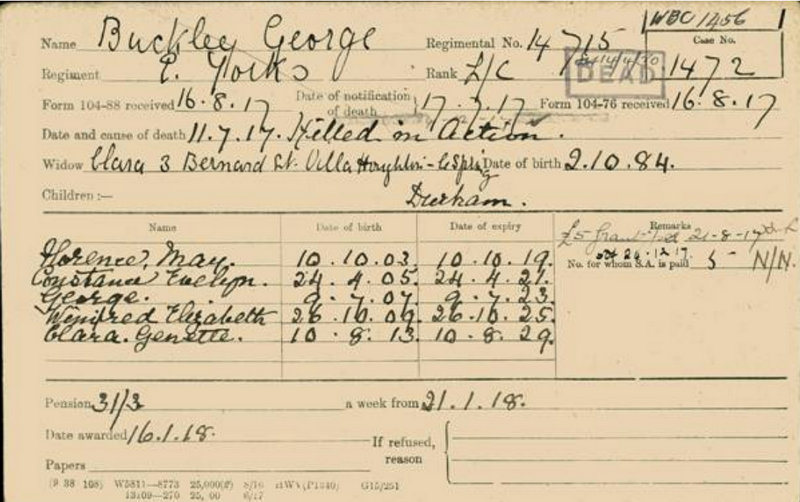 WBC 1456
Name Buckley George Regimental No. 14715 Case No.
Regiment E. Yorks Rank L/C DEAD 1472
Form 104-88 received 16.8.17 Date of notification of death 17.7.17 Form 104-76 received 16.8.17
Date and cause of death 11.7.17. Killed in Action.
Widow Clara 3 Bernard St. Villa Houghton-le Spring Date of birth 2.10.84.
Children :— Durham.
Name Date of birth Date of expiry Remarks
£5 Grant 21-8-17
Florence, May. 10.10.03. 10.10.19. No. for whom S.A. is paid 5 N/N.
Constance Evelyn. 24.4.05. 24.4.21.
George. 9.7.07. 9.7.23.
Winifred Elizabeth 26.10.09. 26.10.25.
Clara. Genette. 10.8.13. 10.8.29.
Pension 31/3 a week from 21.1.18.
Date awarded 16.1.18. If refused, reason
Papers
(9 38 108) W5811—8773 25,000(F) 8/16 HWV(P1340) G15/251
13109—270 25, 00 6/17